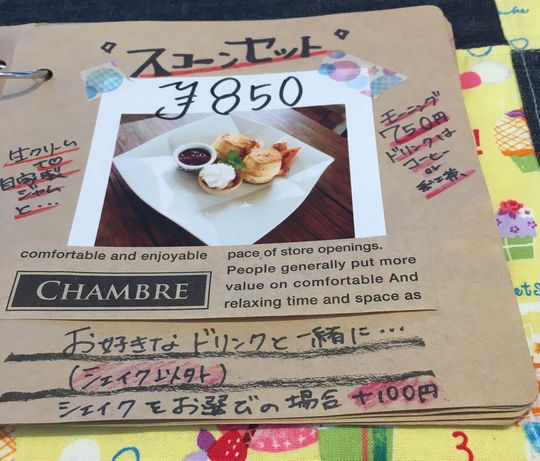 スコーンセット
¥850
生クリーム
と♡
自家製
ジャム
と…
モーニング
750円
ドリンクは
コーヒー
or
紅茶。
comfortable and enjoyable
pace of store openings.
People generally put more
value on comfortable And
relaxing time and space as
CHAMBRE
お好きなドリンクと一緒に…
(シェイク以外)
シェイクをお選びの場合 +100円
3